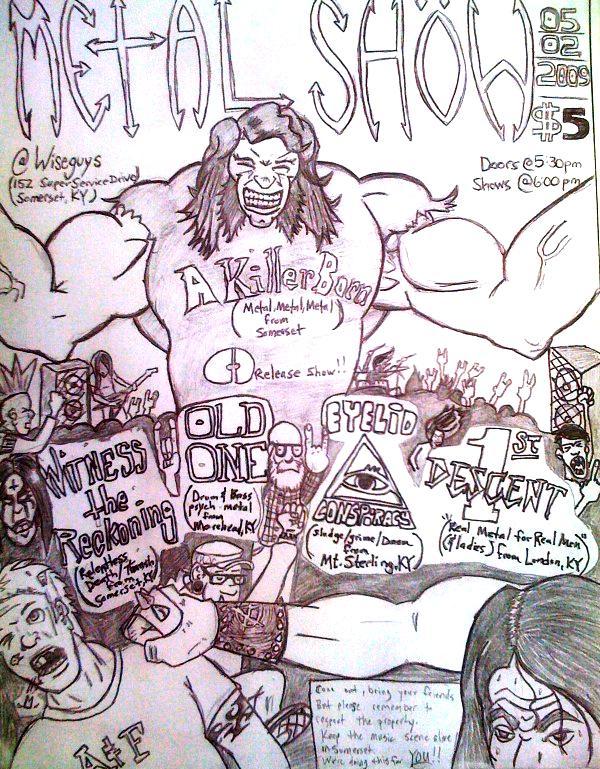 METAL SHOW
05
02
2009
$5
@ Wiseguys
(152 SuperServiceDrive)
Somerset, KY)
Doors @ 5:30pm
Shows @ 6:00 pm
A Killer Born
(Metal, Metal, Metal)
from
Somerset
CD Release Show!!
WITNESS
the
Reckoning
(Relentless
Death/Thrash
from
Somerset, KY)
OLD
ONE
Drum & Bass
psych-metal
from
Morehead, KY
EYELID
CONSPIRACY
(sludge/grime/Doom)
from
Mt. Sterling, KY
1ST
DESCENT
"Real Metal for Real Men"
(& ladies) from London, KY)
A&F
Come out, bring your friends
But please remember to
respect the property.
Keep the music scene alive
in Somerset
We're doing this for YOU!!